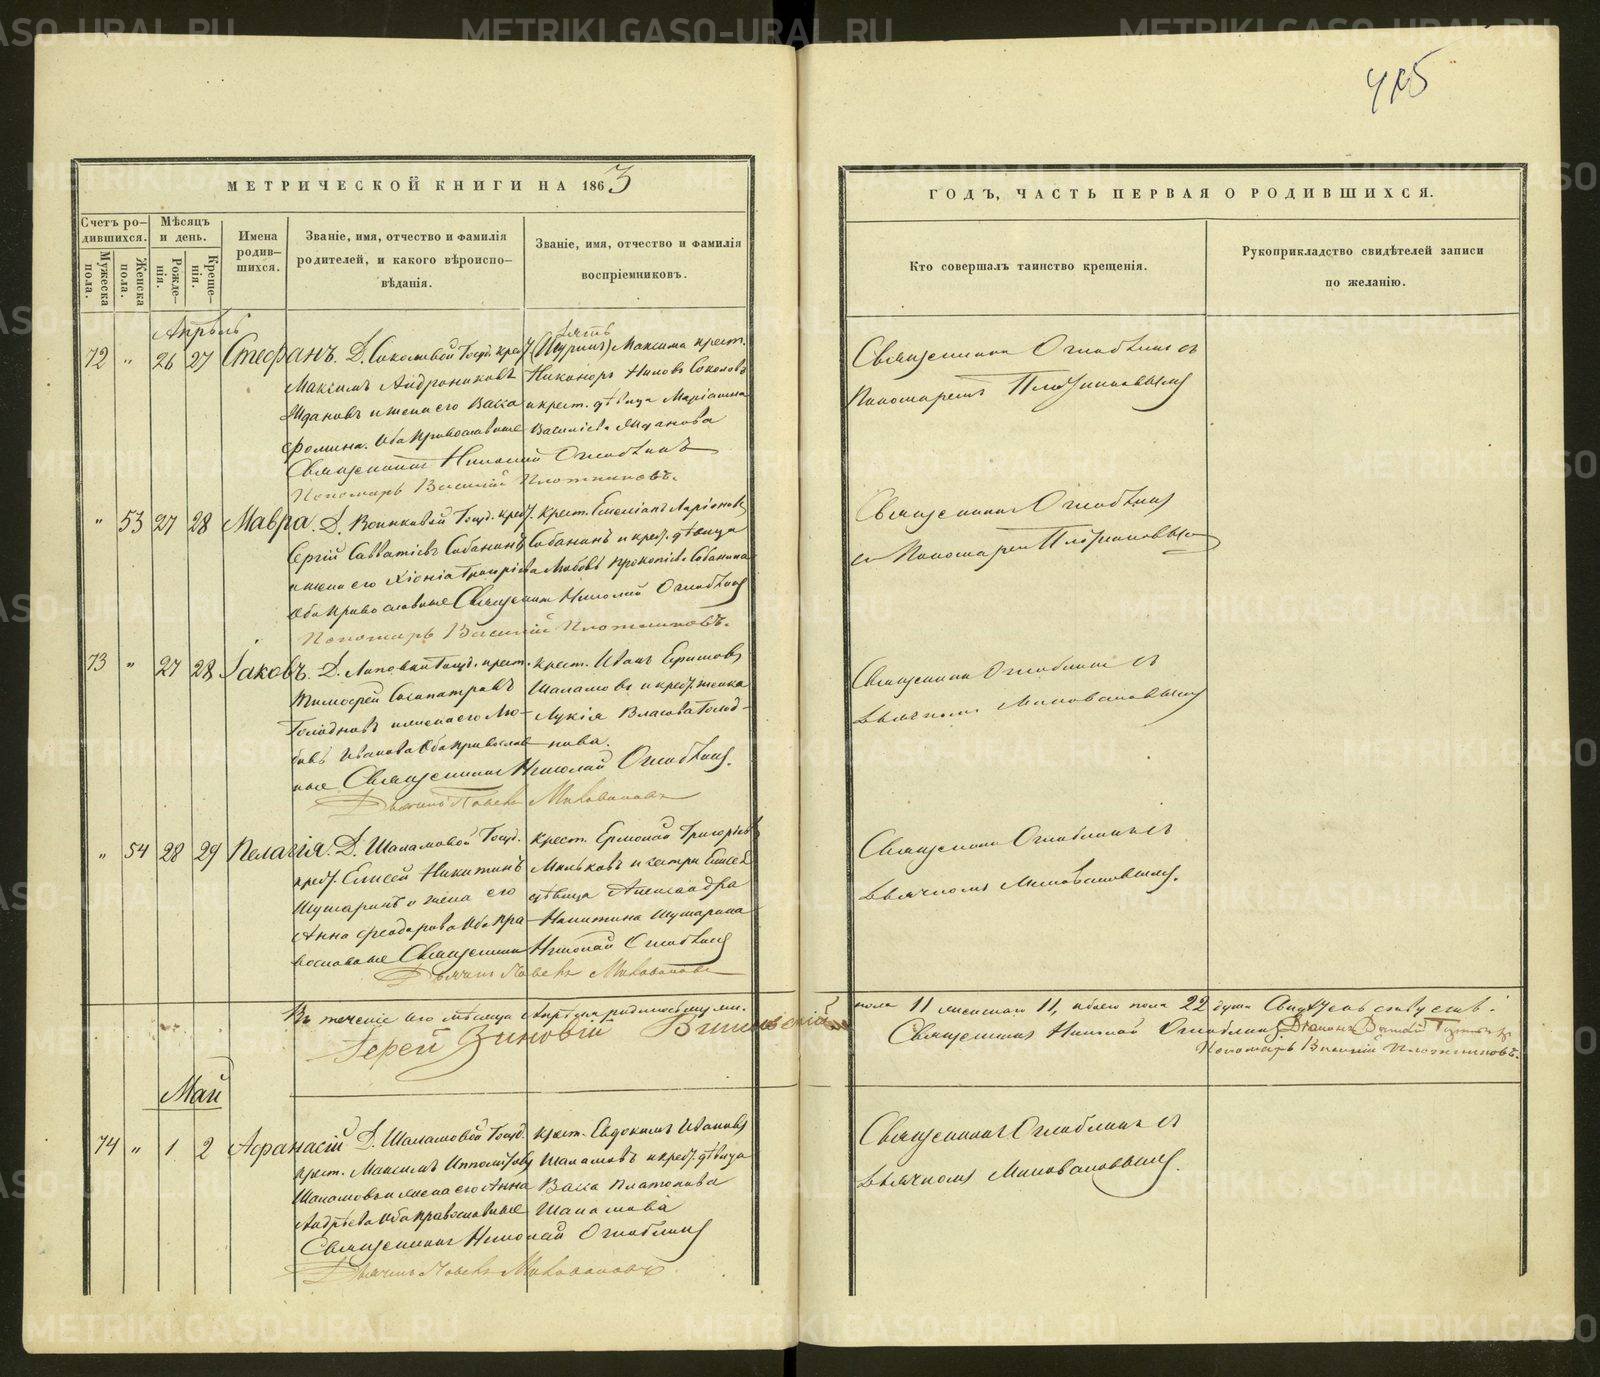 METRIKI.GASO-URAL.RU
415
МЕТРИЧЕСКОЙ КНИГИ НА 1863
Счетъ родившихся.
Мужеска пола.
Женска пола.
Мѣсяцъ и день.
Рожденія.
Крещенія.
Имена родившихся.
Званіе, имя, отчество и фамилія
родителей, и какого вѣроиспо-
вѣданія.
Званіе, имя, отчество и фамилія
воспріемниковъ.
Апрѣль
72 " 26 27 Стефанъ. Д. Соколовой Госуд. крест.
Максимъ Андрониковъ
Ждановъ и жена его Васса
Фомина. Оба православные
зять
(Шуринъ) Максима крест.
Никаноръ Ниловъ Соколовъ
и крест. дѣвица Маріамна
Василіева Жданова
Священникъ Николай Оглоблинъ
Пономарь Василій Плотниковъ.
" 53 27 28 Мавра. Д. Воинковой Госуд. крест.
Сергій Савватіевъ Сабанинъ
и жена его Хіонія Григоріева
Оба православные
Крест. Емеліанъ Ларіоновъ
Сабанинъ и крест. дѣвица
Любовь Прокопіева Сабанина
Священникъ Николай Оглоблинъ
Пономарь Василій Плотниковъ.
73 " 27 28 Іаковъ. Д. Липовки Госуд. крест.
Тимофей Сосипатровъ
Голодновъ и жена его Лю-
бовь Иванова Оба православ-
ные
Крест. Иванъ Ефимовъ
Шаламовъ и крест. женка
Лукія Власова Голод-
нова.
Священникъ Николай Оглоблинъ.
Дьячекъ Павелъ Миловановъ
" 54 28 29 Пелагія. Д. Шаламовой Госуд.
крест. Елисей Никитинъ
Шушаринъ и жена его
Анна Феодорова Оба пра-
вославные
Крест. Ермолай Григорьевъ
Мальковъ и сестра Елисея
дѣвица Александра
Никитина Шушарина
Священникъ Николай Оглоблинъ
Дьячекъ Павелъ Миловановъ
Въ теченіе сего мѣсяца Апрѣля родилось муж.
Іерей Зиновій
Май
74 " 1 2 Афанасій Д. Шаламовой Госуд.
крест. Максимъ Ипполитовъ
Шаламовъ и жена его Анна
Андрѣева Оба православные
Крест. Евдокимъ Ивановъ
Шаламовъ и крест. дѣвица
Васса Платонова
Шаламова
Священникъ Николай Оглоблинъ
Дьячекъ Павелъ Миловановъ.
ГОДЪ, ЧАСТЬ ПЕРВАЯ О РОДИВШИХСЯ.
Кто совершалъ таинство крещенія.
Рукоприкладство свидѣтелей записи
по желанію.
Священникъ Оглоблинъ съ
Пономаремъ Плотниковымъ
Священникъ Оглоблинъ
съ Пономаремъ Плотниковымъ
Священникъ Оглоблинъ съ
Дьячкомъ Миловановымъ
Священникъ Оглоблинъ съ
Дьячкомъ Миловановымъ.
пола 11 женскаго 11, обоего пола 22 души
Священникъ Николай Оглоблинъ
Пономарь Василій Плотниковъ.
Священникъ Оглоблинъ съ
Дьячкомъ Миловановымъ.